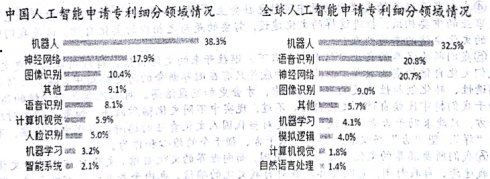 中国人工智能申请专利细分领域情况
机器人 38.3%
神经网络 17.9%
图像识别 10.4%
其他 9.1%
语音识别 8.1%
计算机视觉 5.9%
人脸识别 5.0%
机器学习 3.2%
智能系统 2.1%
全球人工智能申请专利细分领域情况
机器人 32.5%
语音识别 20.8%
神经网络 20.7%
图像识别 9.0%
其他 5.7%
机器学习 4.1%
模拟逻辑 4.0%
计算机视觉 1.8%
自然语言处理 1.4%